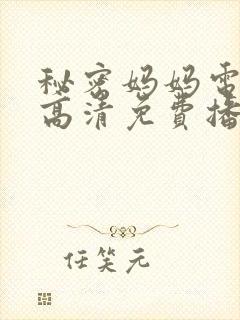 秘密妈妈电
高清免费播
任笑元